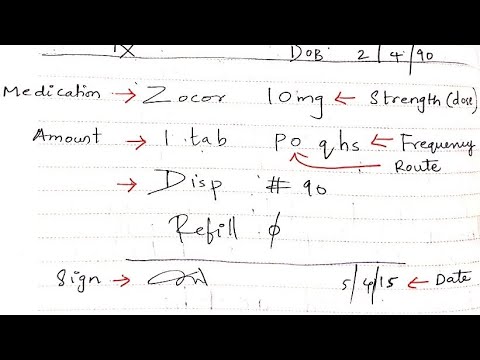 Rx DOB 2/4/90
Medication → Zocor 10mg ← Strength (dose)
Amount → 1 tab PO qhs ← Frequency
Route
→ Disp # 90
Refill ϕ
Sign → 5/4/15 ← Date